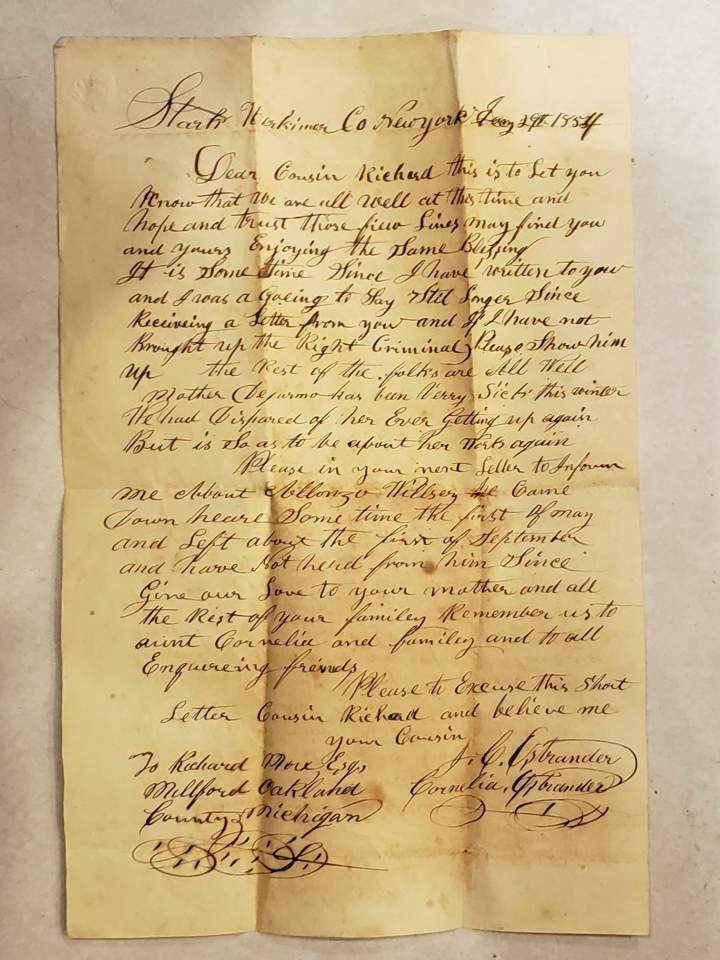 Stark Herkimer Co New york Jany 29th 1854
Dear Cousin Richard this is to Let you
Know that We are all well at this time and
hope and trust those fiew Lines may find you
and yours Enjoying the Same Blessing
It is Some time Since I have written to you
and I was a Goeing to Say Still Longer Since
Receiveing a Letter from you and If I have not
Brought up the Right Criminal, Please Show him
up the Rest of the folks are All Well
Mother Dejarmo has been Verry Sick this winter
We had Dispared of her Ever Getting up again
But is So as to be about her Work again
Please in your next Letter to Inform
me About Allonzo Willsey He Came
Down heare Some time the first of may
and Left about the first of September
and have Not herd from him Since
Give our Love to your mother and all
the Rest of your familey Remember us to
aunt Cornelia and familey and to all
Enquireing friends
Please to Excuse this Short
Letter Cousin Richard and believe me
your Cousin
J. C. Ostrander
Cornelia, Ostrander
To Richard Esqr
Millford Oakland
County Michigan